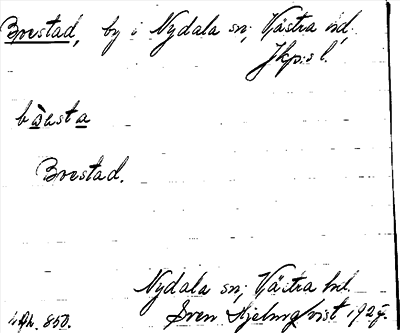 Brestad, by i Nydala sn, Västra hd,
Jkp:s l.
båsta
Brestad.
Nydala sn; Västra hd.
Sven Hjelmqvist 1927.
850.